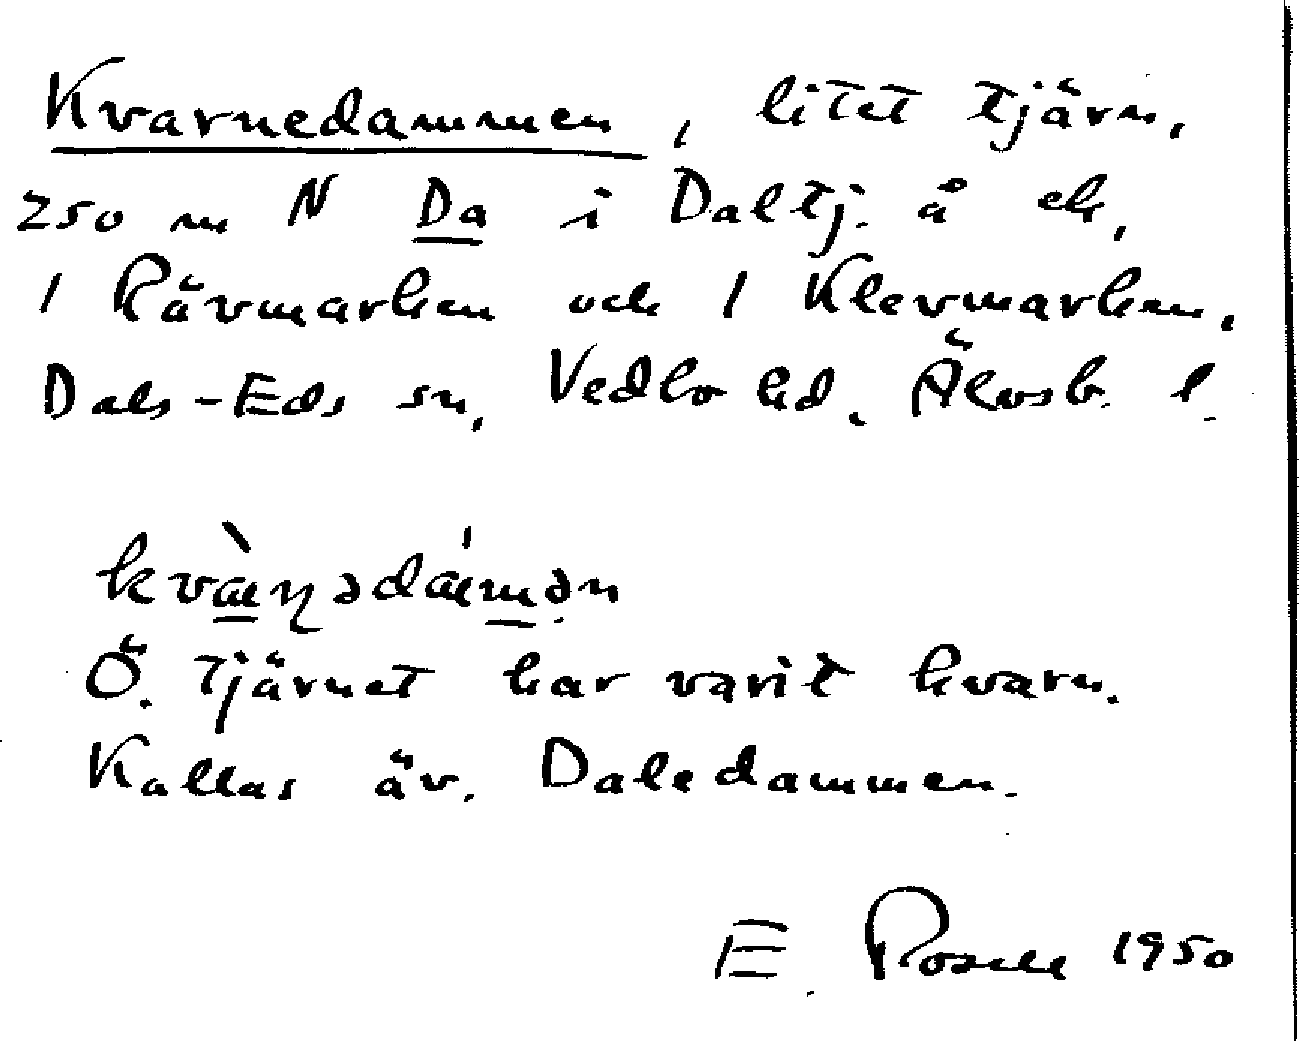 Kvarnedammen, litet tjärn,
250 m N Da i Daltj. å ek,
1 Rävmarken och 1 Klevmarken,
Dals-Eds sn, Vedbo hd. Älvsb. l.
kvæ̀ṇədǽmən
Ö. tjärnet har varit kvarn.
Kallas äv. Daledammen.
E. 1950